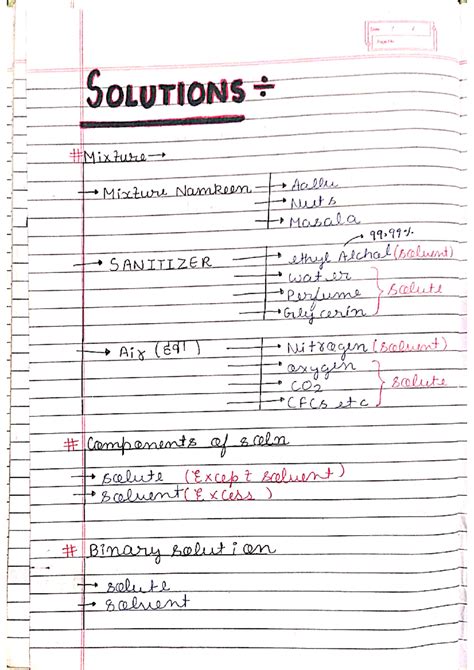 SOLUTIONS ÷
# Mixture →
→ Mixture Namkeen → Aallu
→ Nuts
→ Masala
→ 99.99%
→ SANITIZER → ethyl Alchal (solvent)
→ water
→ Perfume } solute
→ Glycerin
→ Air → Nitrogen (solvent)
→ oxygen
→ CO2 } solute
→ CFCs etc
# Components of soln
→ solute (Except solvent)
→ solvent (Excess)
# Binary solution
→ solute
→ solvent